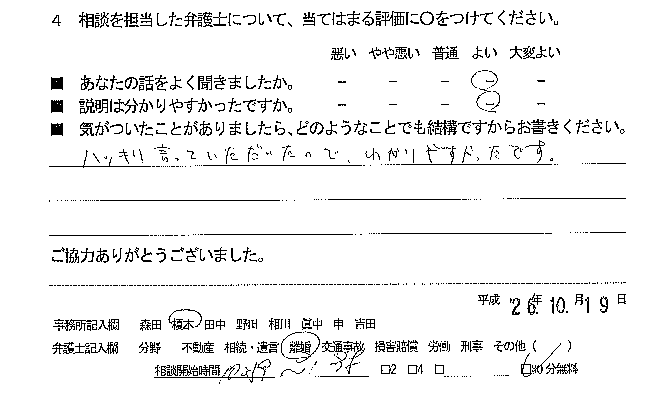 4 相談を担当した弁護士について、当てはまる評価に〇をつけてください。
悪い やや悪い 普通 よい 大変よい
■ あなたの話をよく聞きましたか。 － － － － －
■ 説明は分かりやすかったですか。 － － － － －
■ 気がついたことがありましたら、どのようなことでも結構ですからお書きください。
ハッキリ言っていただいたので、わかりやすかったです。
ご協力ありがとうございました。
平成 '26年 10.月 19 日
事務所記入欄 森田 榎木 田中 野田 相川 眞中 申 吉田
弁護士記入欄 分野 不動産 相続・遺言 離婚 交通事故 損害賠償 労働 刑事 その他( )
相談開始時間 ～ □2 □4 □ □90分無料